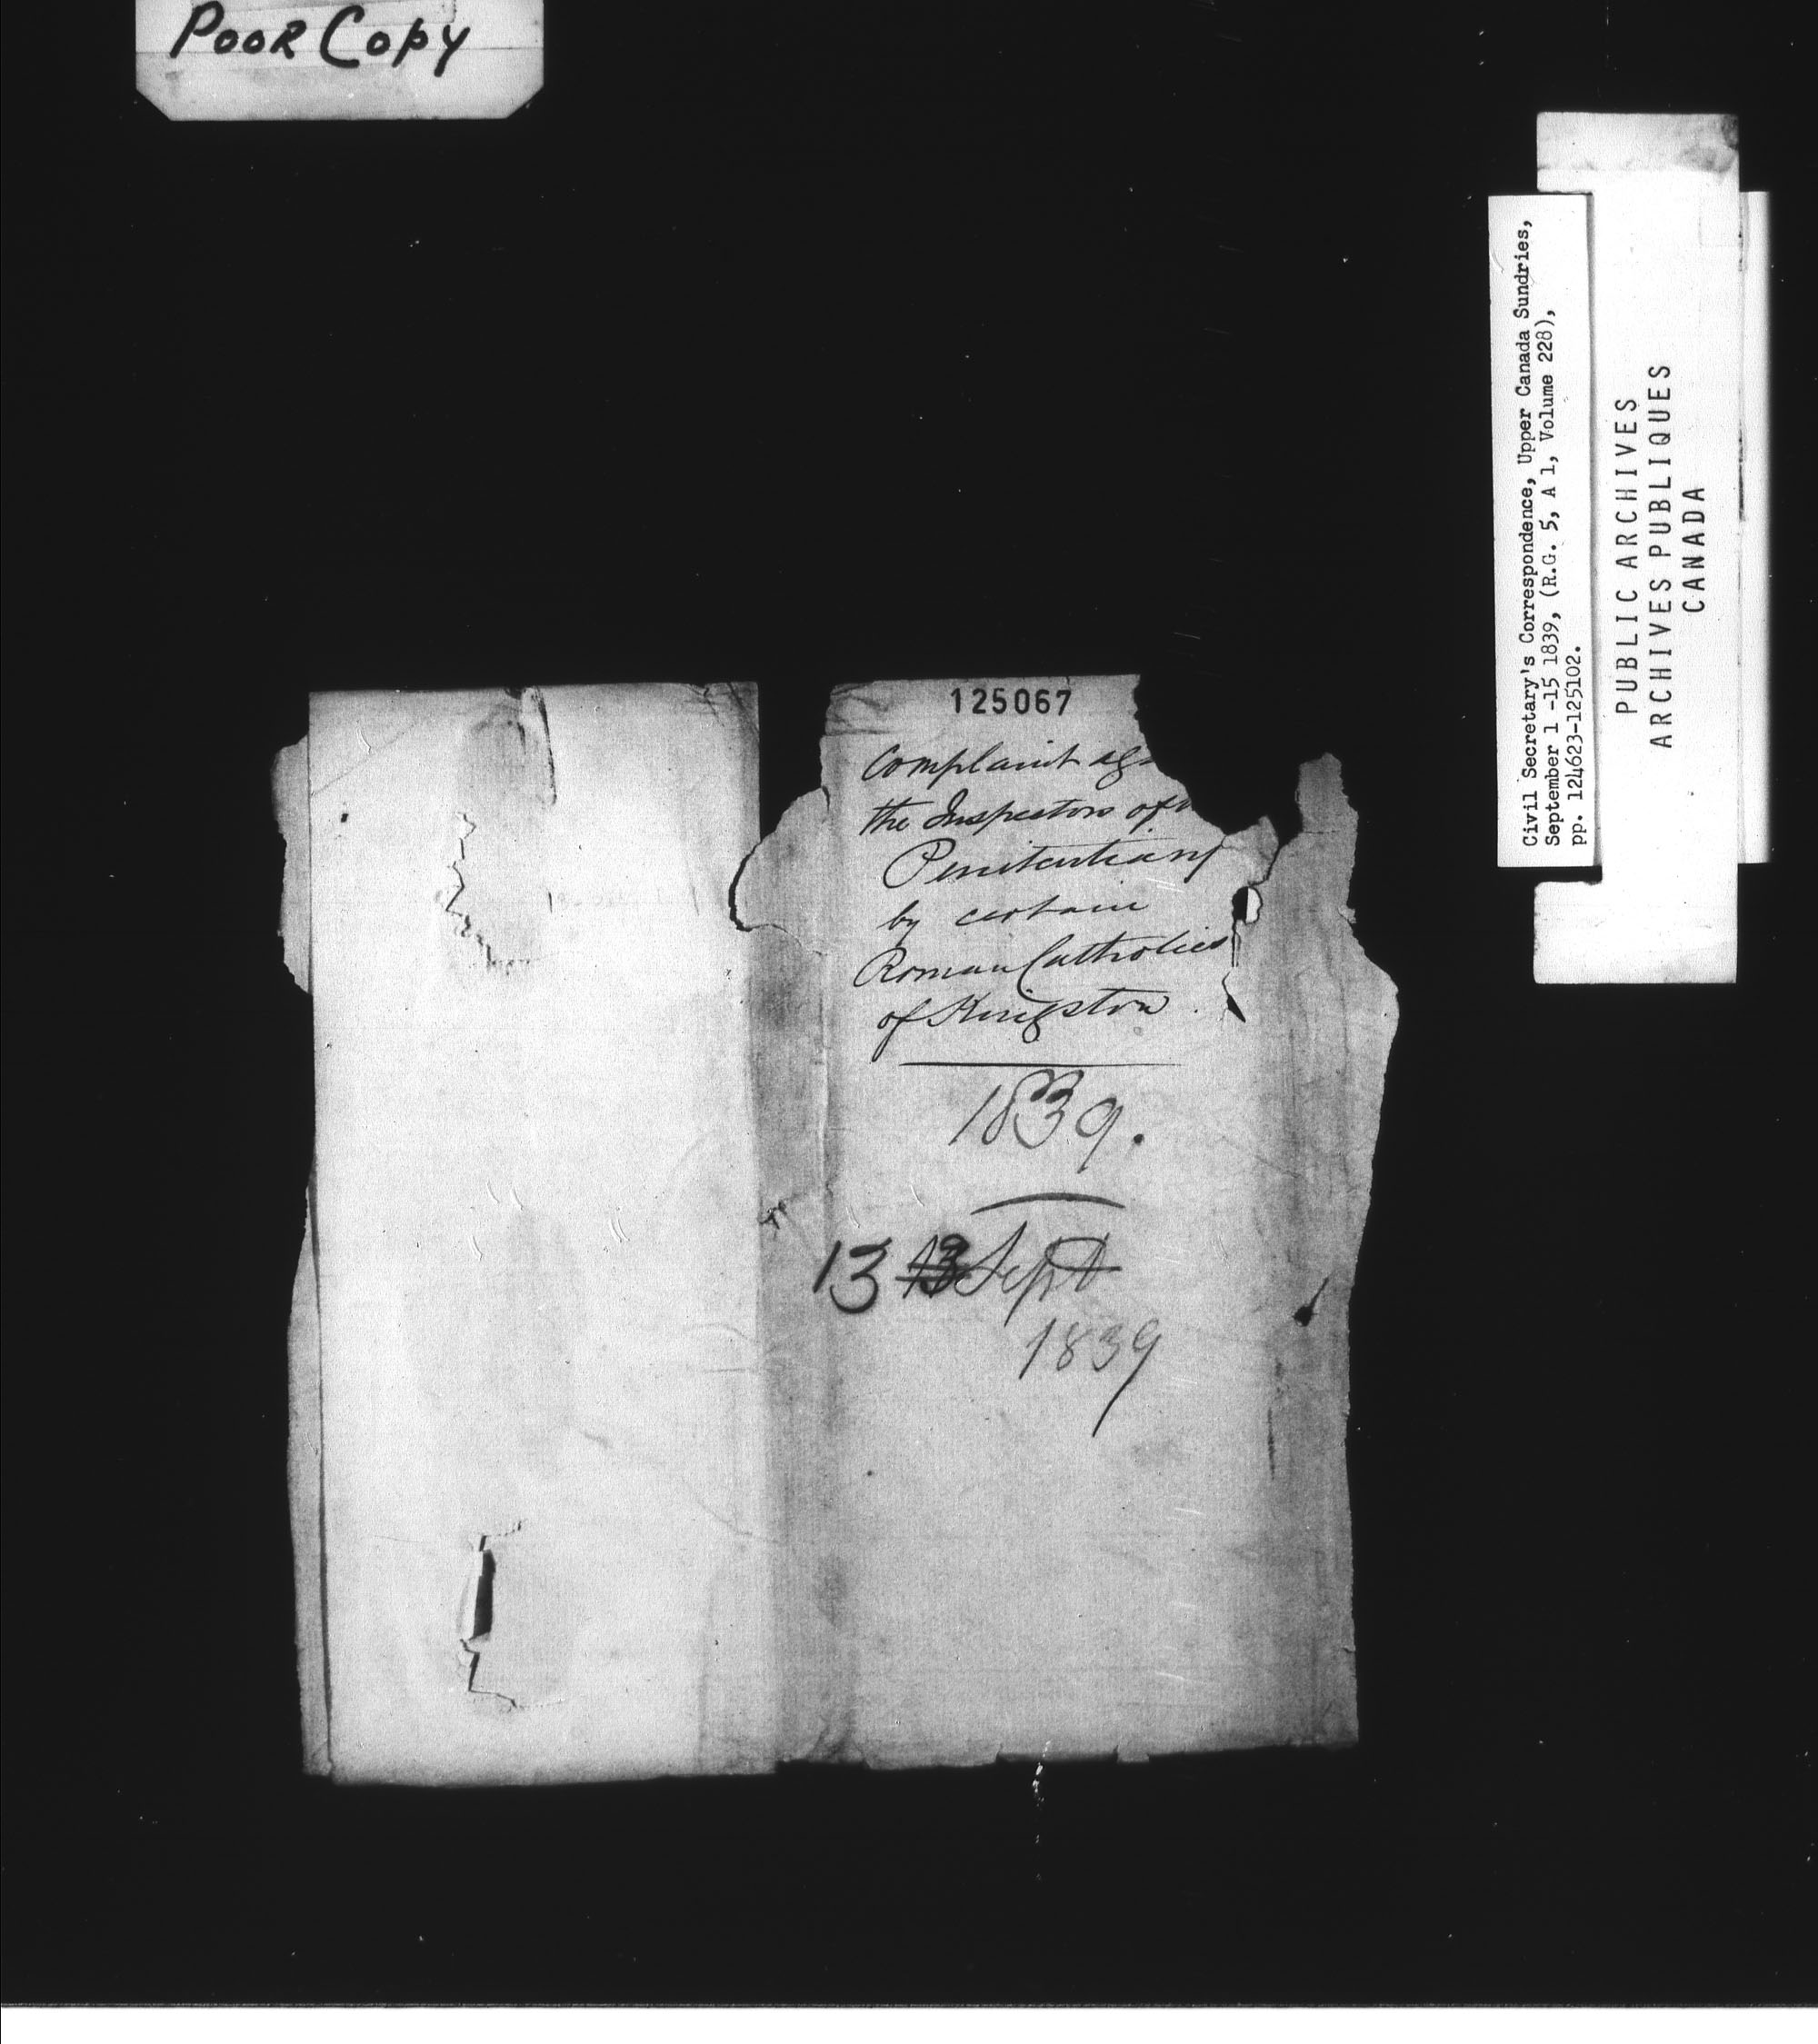 Poor Copy
Civil Secretary's Correspondence, Upper Canada Sundries,
September 1 -15 1839, (R.G. 5, A 1, Volume 228),
pp. 124623-125102.
PUBLIC ARCHIVES
ARCHIVES PUBLIQUES
CANADA
125067
Complaint ags
the Inspectors of
Penitentiary
by certain
Roman Catholics
of Kingston.
1839.
13 13 Sept
1839